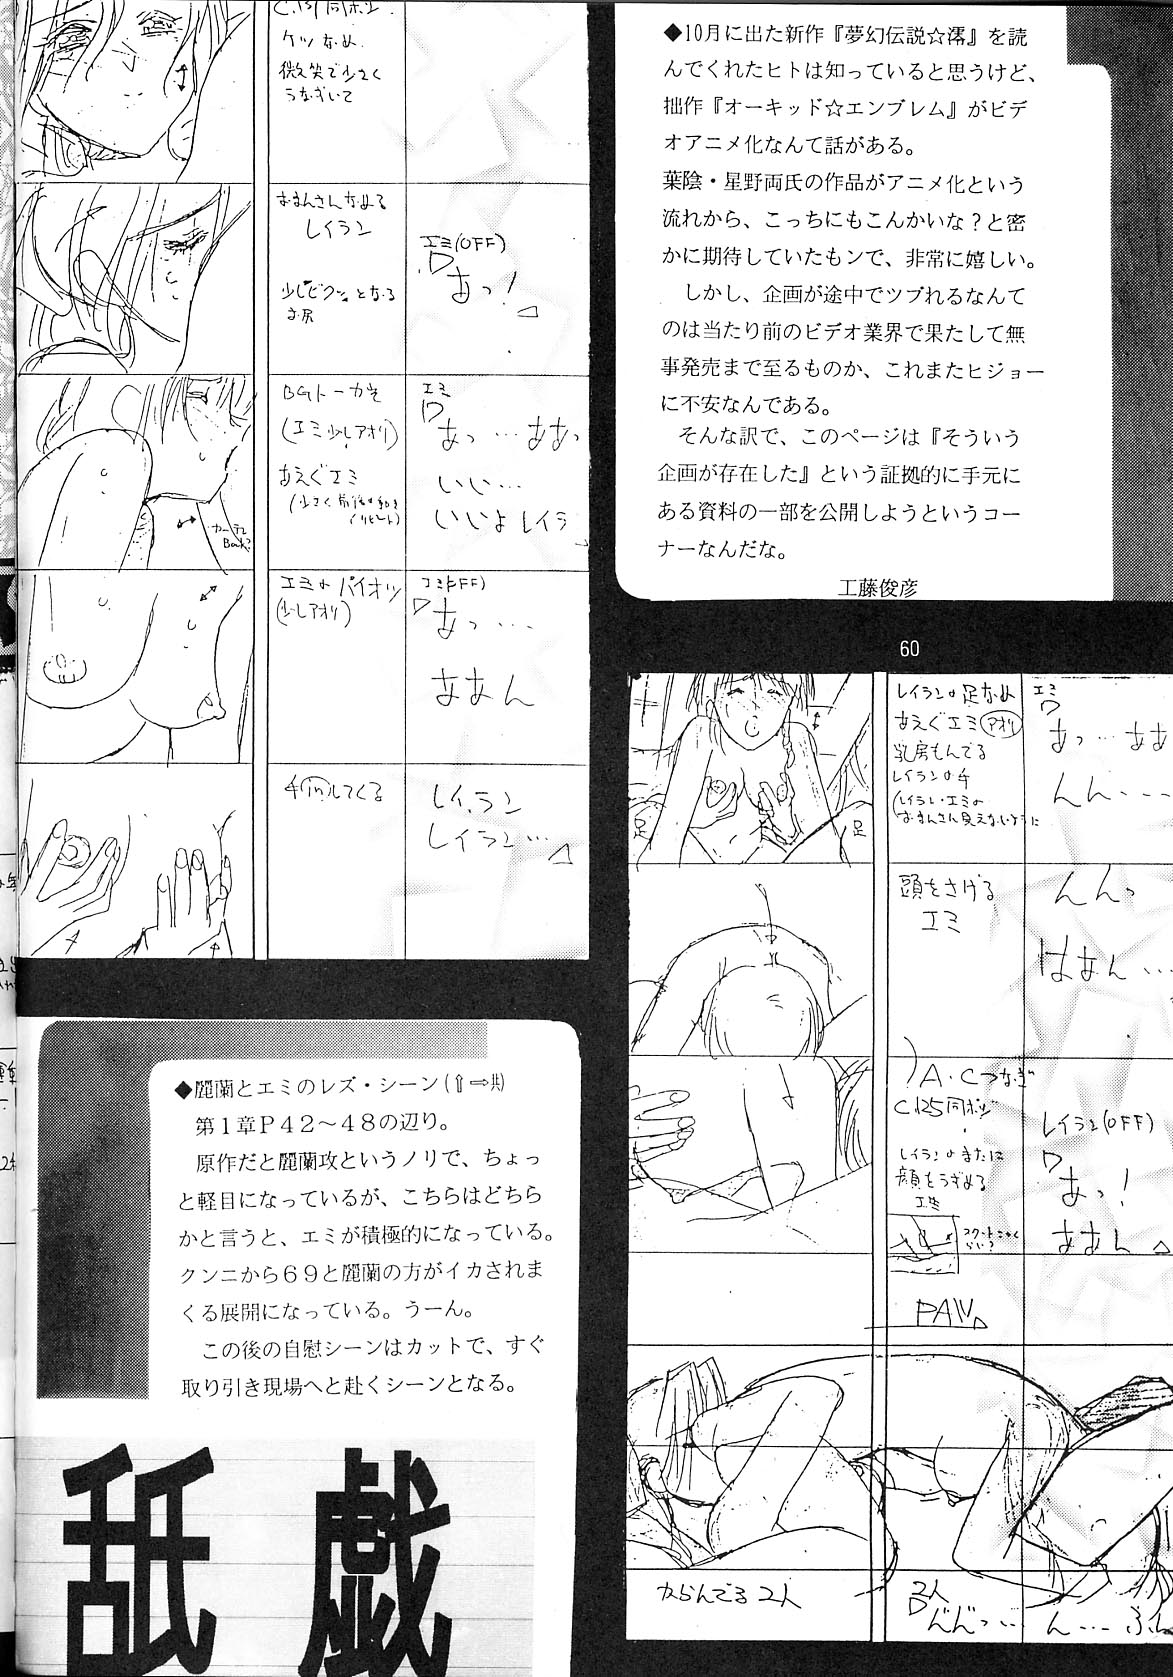 ◆10月に出た新作『夢幻伝説☆澪』を読
んでくれたヒトは知っていると思うけど、
拙作『オーキッド☆エンブレム』がビデ
オアニメ化なんて話がある。
葉陰・星野両氏の作品がアニメ化という
流れから、こっちにもこんかいな？と密
かに期待していたもンで、非常に嬉しい。
しかし、企画が途中でツブれるなんて
のは当たり前のビデオ業界で果たして無
事発売まで至るものか、これまたヒジョー
に不安なんである。
そんな訳で、このページは『そういう
企画が存在した』という証拠的に手元に
ある資料の一部を公開しようというコー
ナーなんだな。
工藤俊彦
60
ケツなめ
微笑で少さく
うなずいて
レイラン
少しビクッとなる
お尻
エミ(OFF)
あっ!
(エミ少しアオリ)
あえぐエミ
エミ
あっ…ああっ
いい…
いいよレイラ
エミのパイオツ
(少しアオリ)
あっ…
ああん
手inしてくる
レイラン
レイラン…
レイランの足なめ
あえぐエミ(アオリ)
乳房もんでる
レイランの手
足
足
エミ
あっ…ああ
んん…
頭をさげる
エミ
んんっ
はあん…
A・Cつなぎ
レイランのまたに
顔をうずめる
エミ
レイラン(OFF)
あっ!
ああん
PAN
からんでる2人
2人
んんっ…
ん…ふん
◆麗蘭とエミのレズ・シーン(⇧⇨共)
第１章Ｐ４２～４８の辺り。
原作だと麗蘭攻というノリで、ちょっ
と軽目になっているが、こちらはどちら
かと言うと、エミが積極的になっている。
クンニから６９と麗蘭の方がイカされま
くる展開になっている。うーん。
この後の自慰シーンはカットで、すぐ
取り引き現場へと赴くシーンとなる。
舐戯